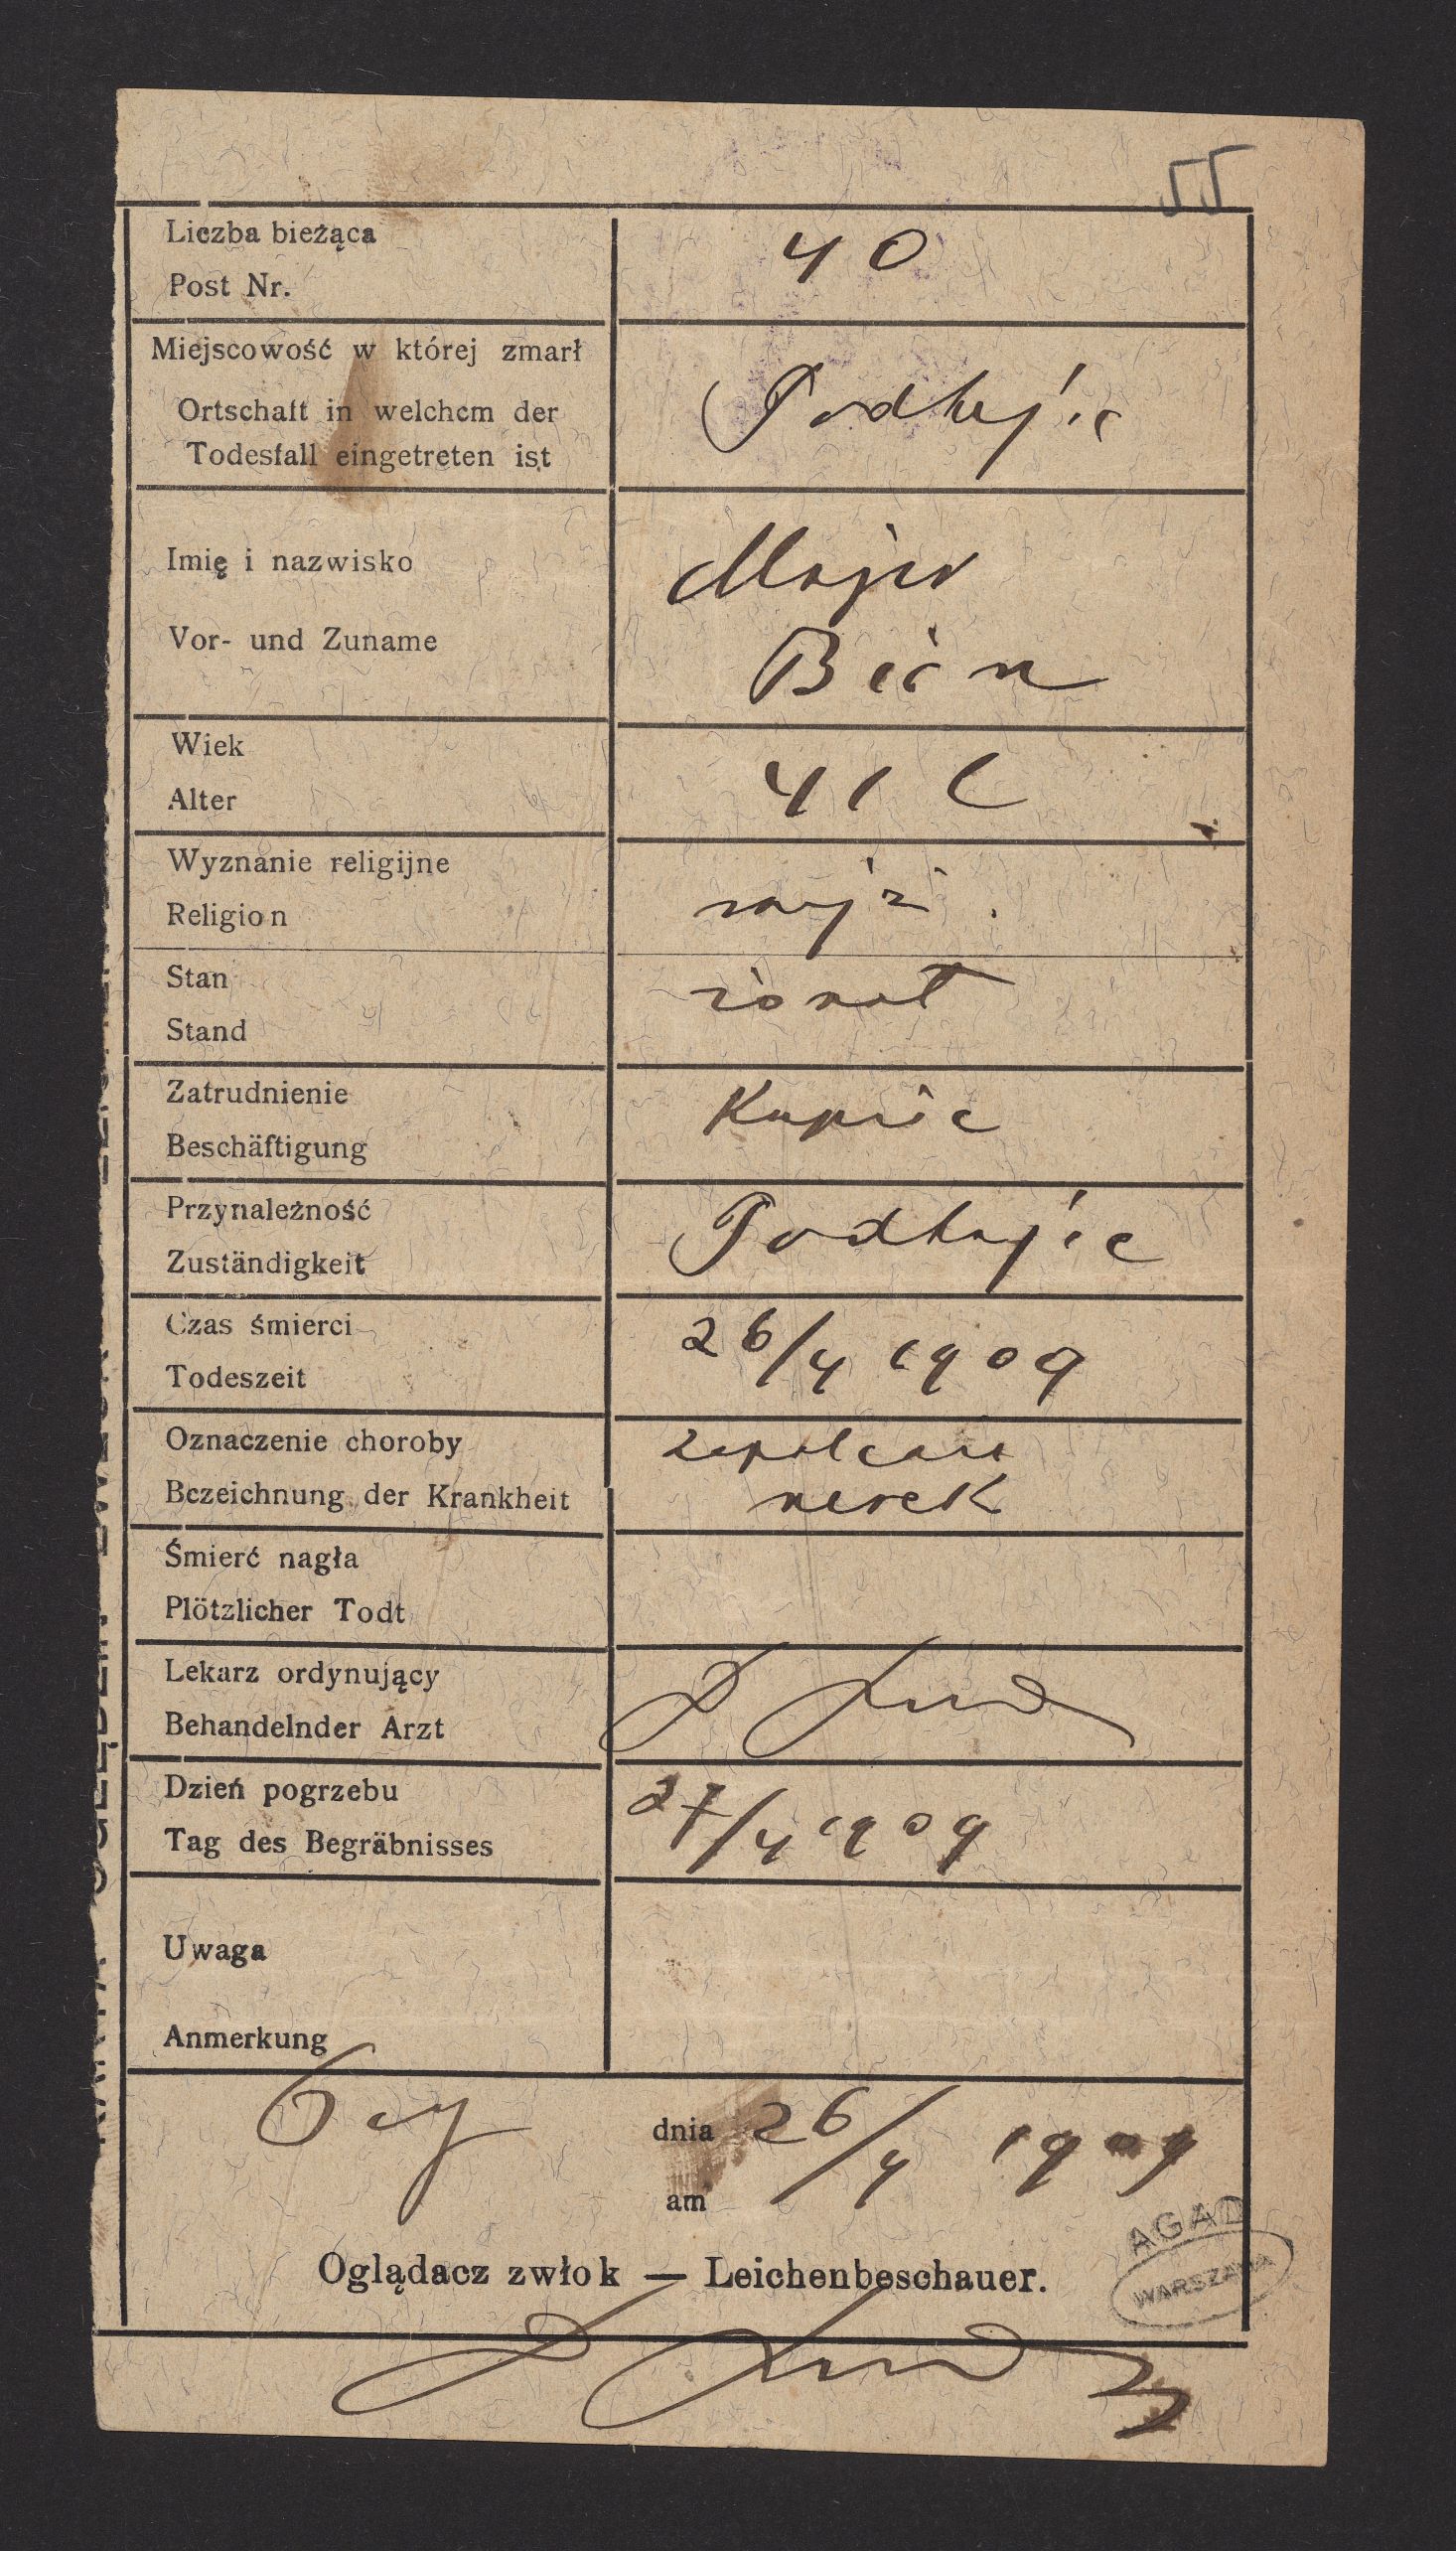 55
Liczba bieżąca
Post Nr.
40
Miejscowość w której zmarł
Ortschaft in welchem der
Todesfall eingetreten ist
Podhajce
Imię i nazwisko
Vor- und Zuname
Majer
Bein
Wiek
Alter
41 l
Wyznanie religijne
Religion
mojż.
Stan
Stand
żonat
Zatrudnienie
Beschäftigung
Kupiec
Przynależność
Zuständigkeit
Podhajce
Czas śmierci
Todeszeit
26/4 1909
Oznaczenie choroby
Bezeichnung der Krankheit
zapalenie
nerek
Śmierć nagła
Plötzlicher Todt
Lekarz ordynujący
Behandelnder Arzt
Dzień pogrzebu
Tag des Begräbnisses
27/4 1909
Uwaga
Anmerkung
dnia 26/4 1909
am
Oglądacz zwłok — Leichenbeschauer.
AGAD
WARSZAWA